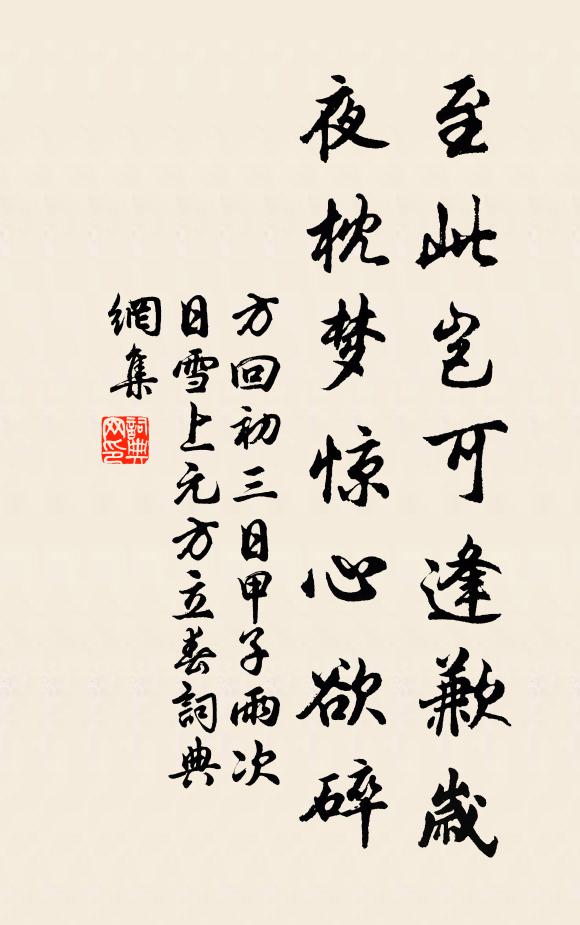 至此岂可逢歉歳
夜枕梦惊心欲碎
方回初三日甲子雨次
日雪上元方立春詞典
網集
詞典
网印